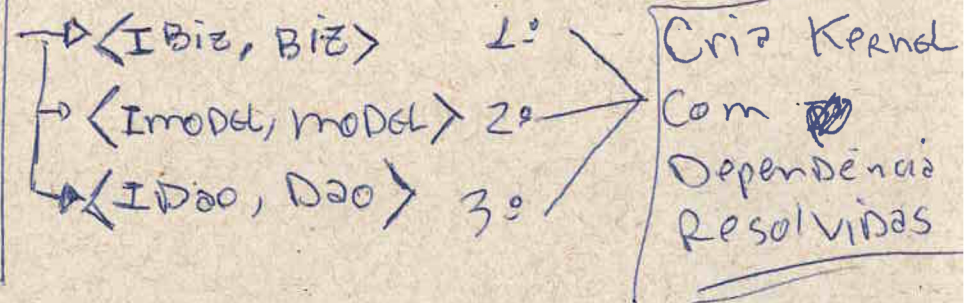 <IBiz, BiZ> 1º
<ImoDel, moDel> 2º
<IDao, Dao> 3º
Cria Kernel
Com
Dependência
Resolvidas